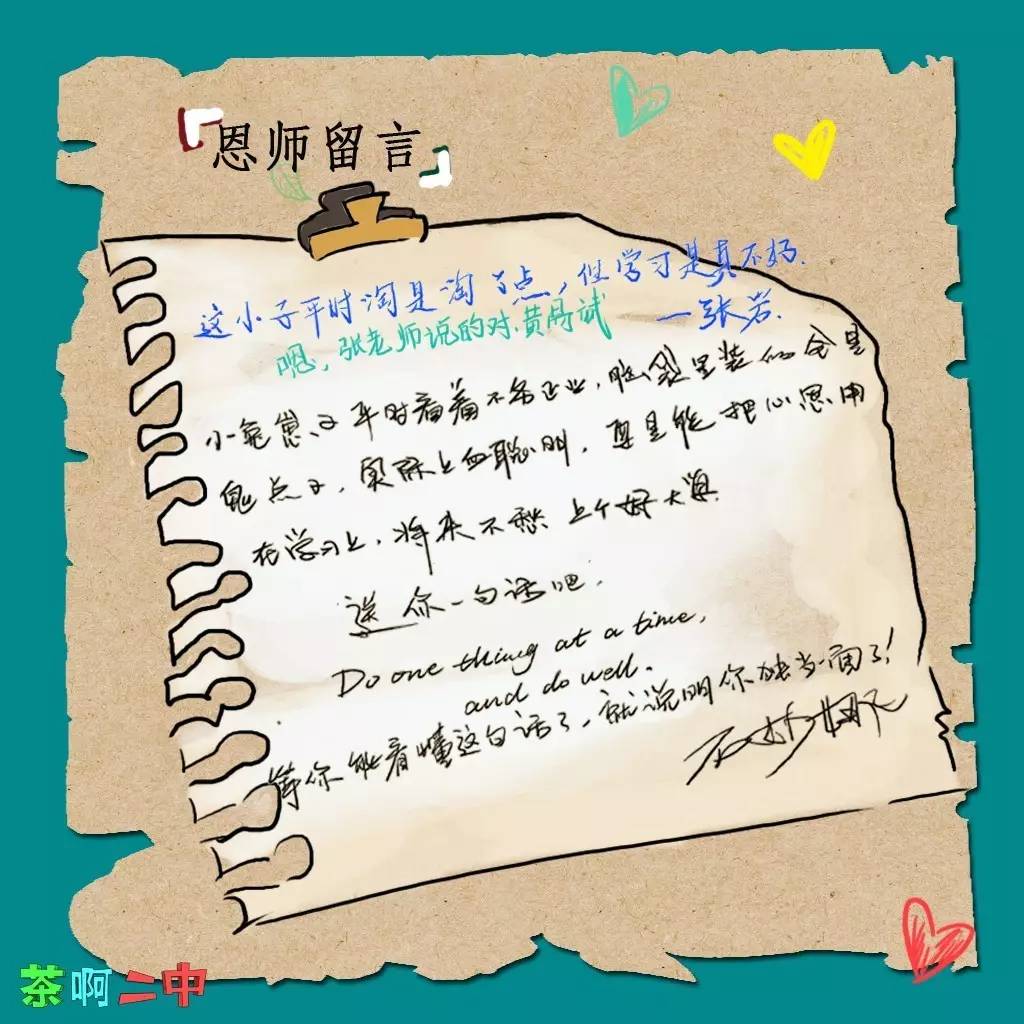 『恩师留言』
这小子平时淘是淘了点,但学习是真不孬.
一张岩.
嗯,张老师说的对.黄丹斌
小龟崽子平时看着不务正业,脑袋里装的全是
鬼点子,实际上血聪明,要是能把心思用
在学习上,将来不愁上个好大学.
送你一句话吧.
Do one thing at a time,
and do well.
等你能看懂这句话了,就说明你独当一面了!
石妙娜
茶啊二中